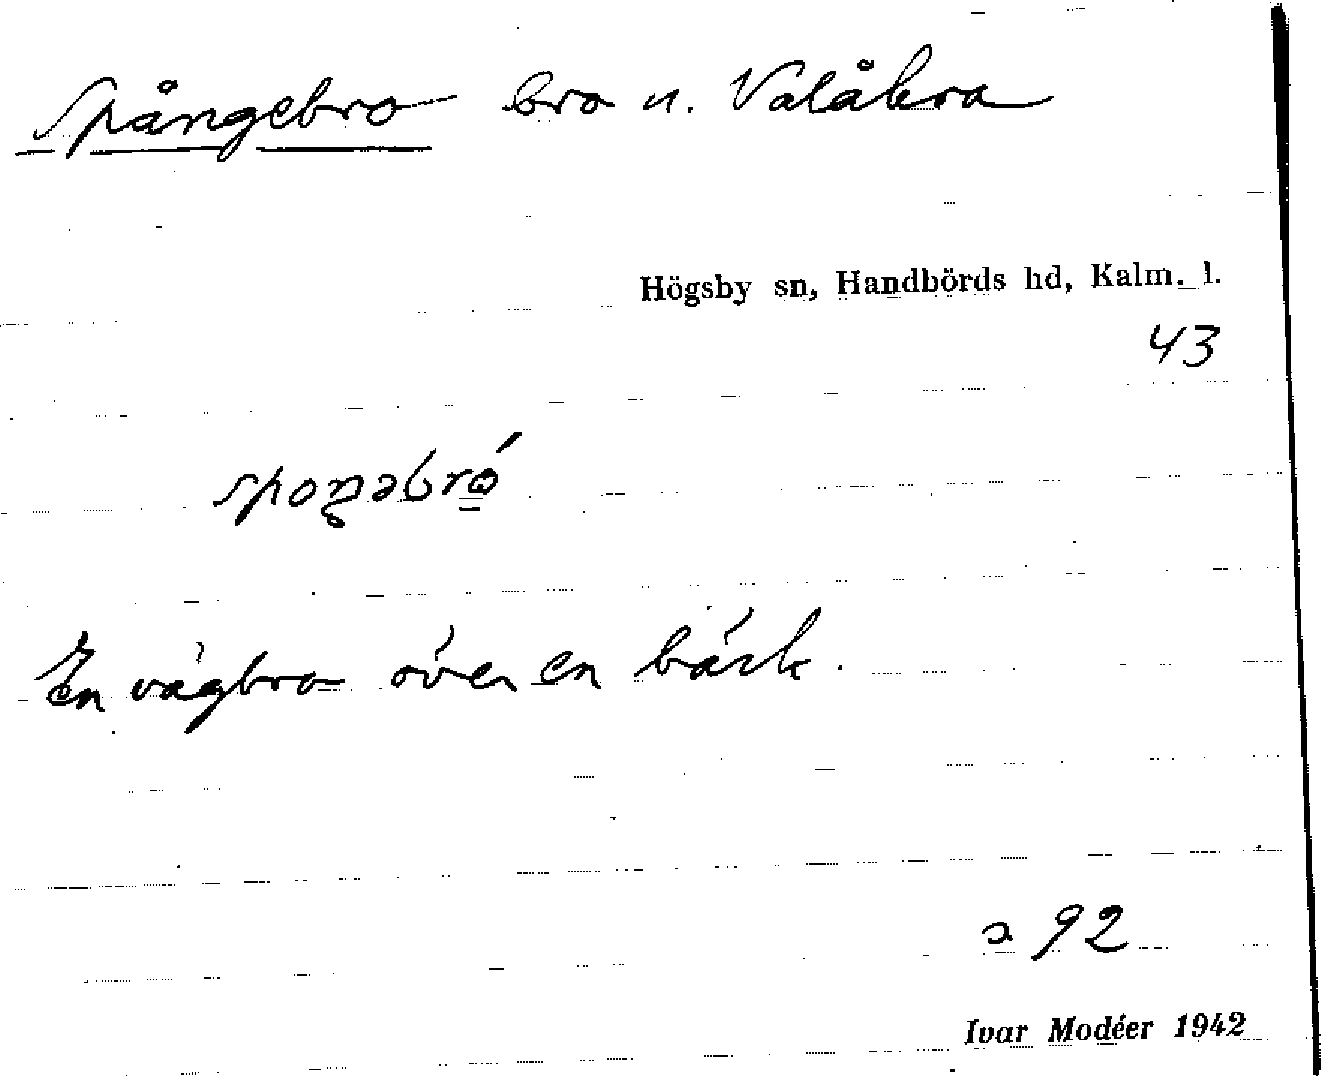 Spångebro bro n. Valåkra
Högsby sn, Handbörds hd, Kalm. l.
43
spoŋəbró
En vägbro över en bäck.
a 92
Ivar Modéer 1942